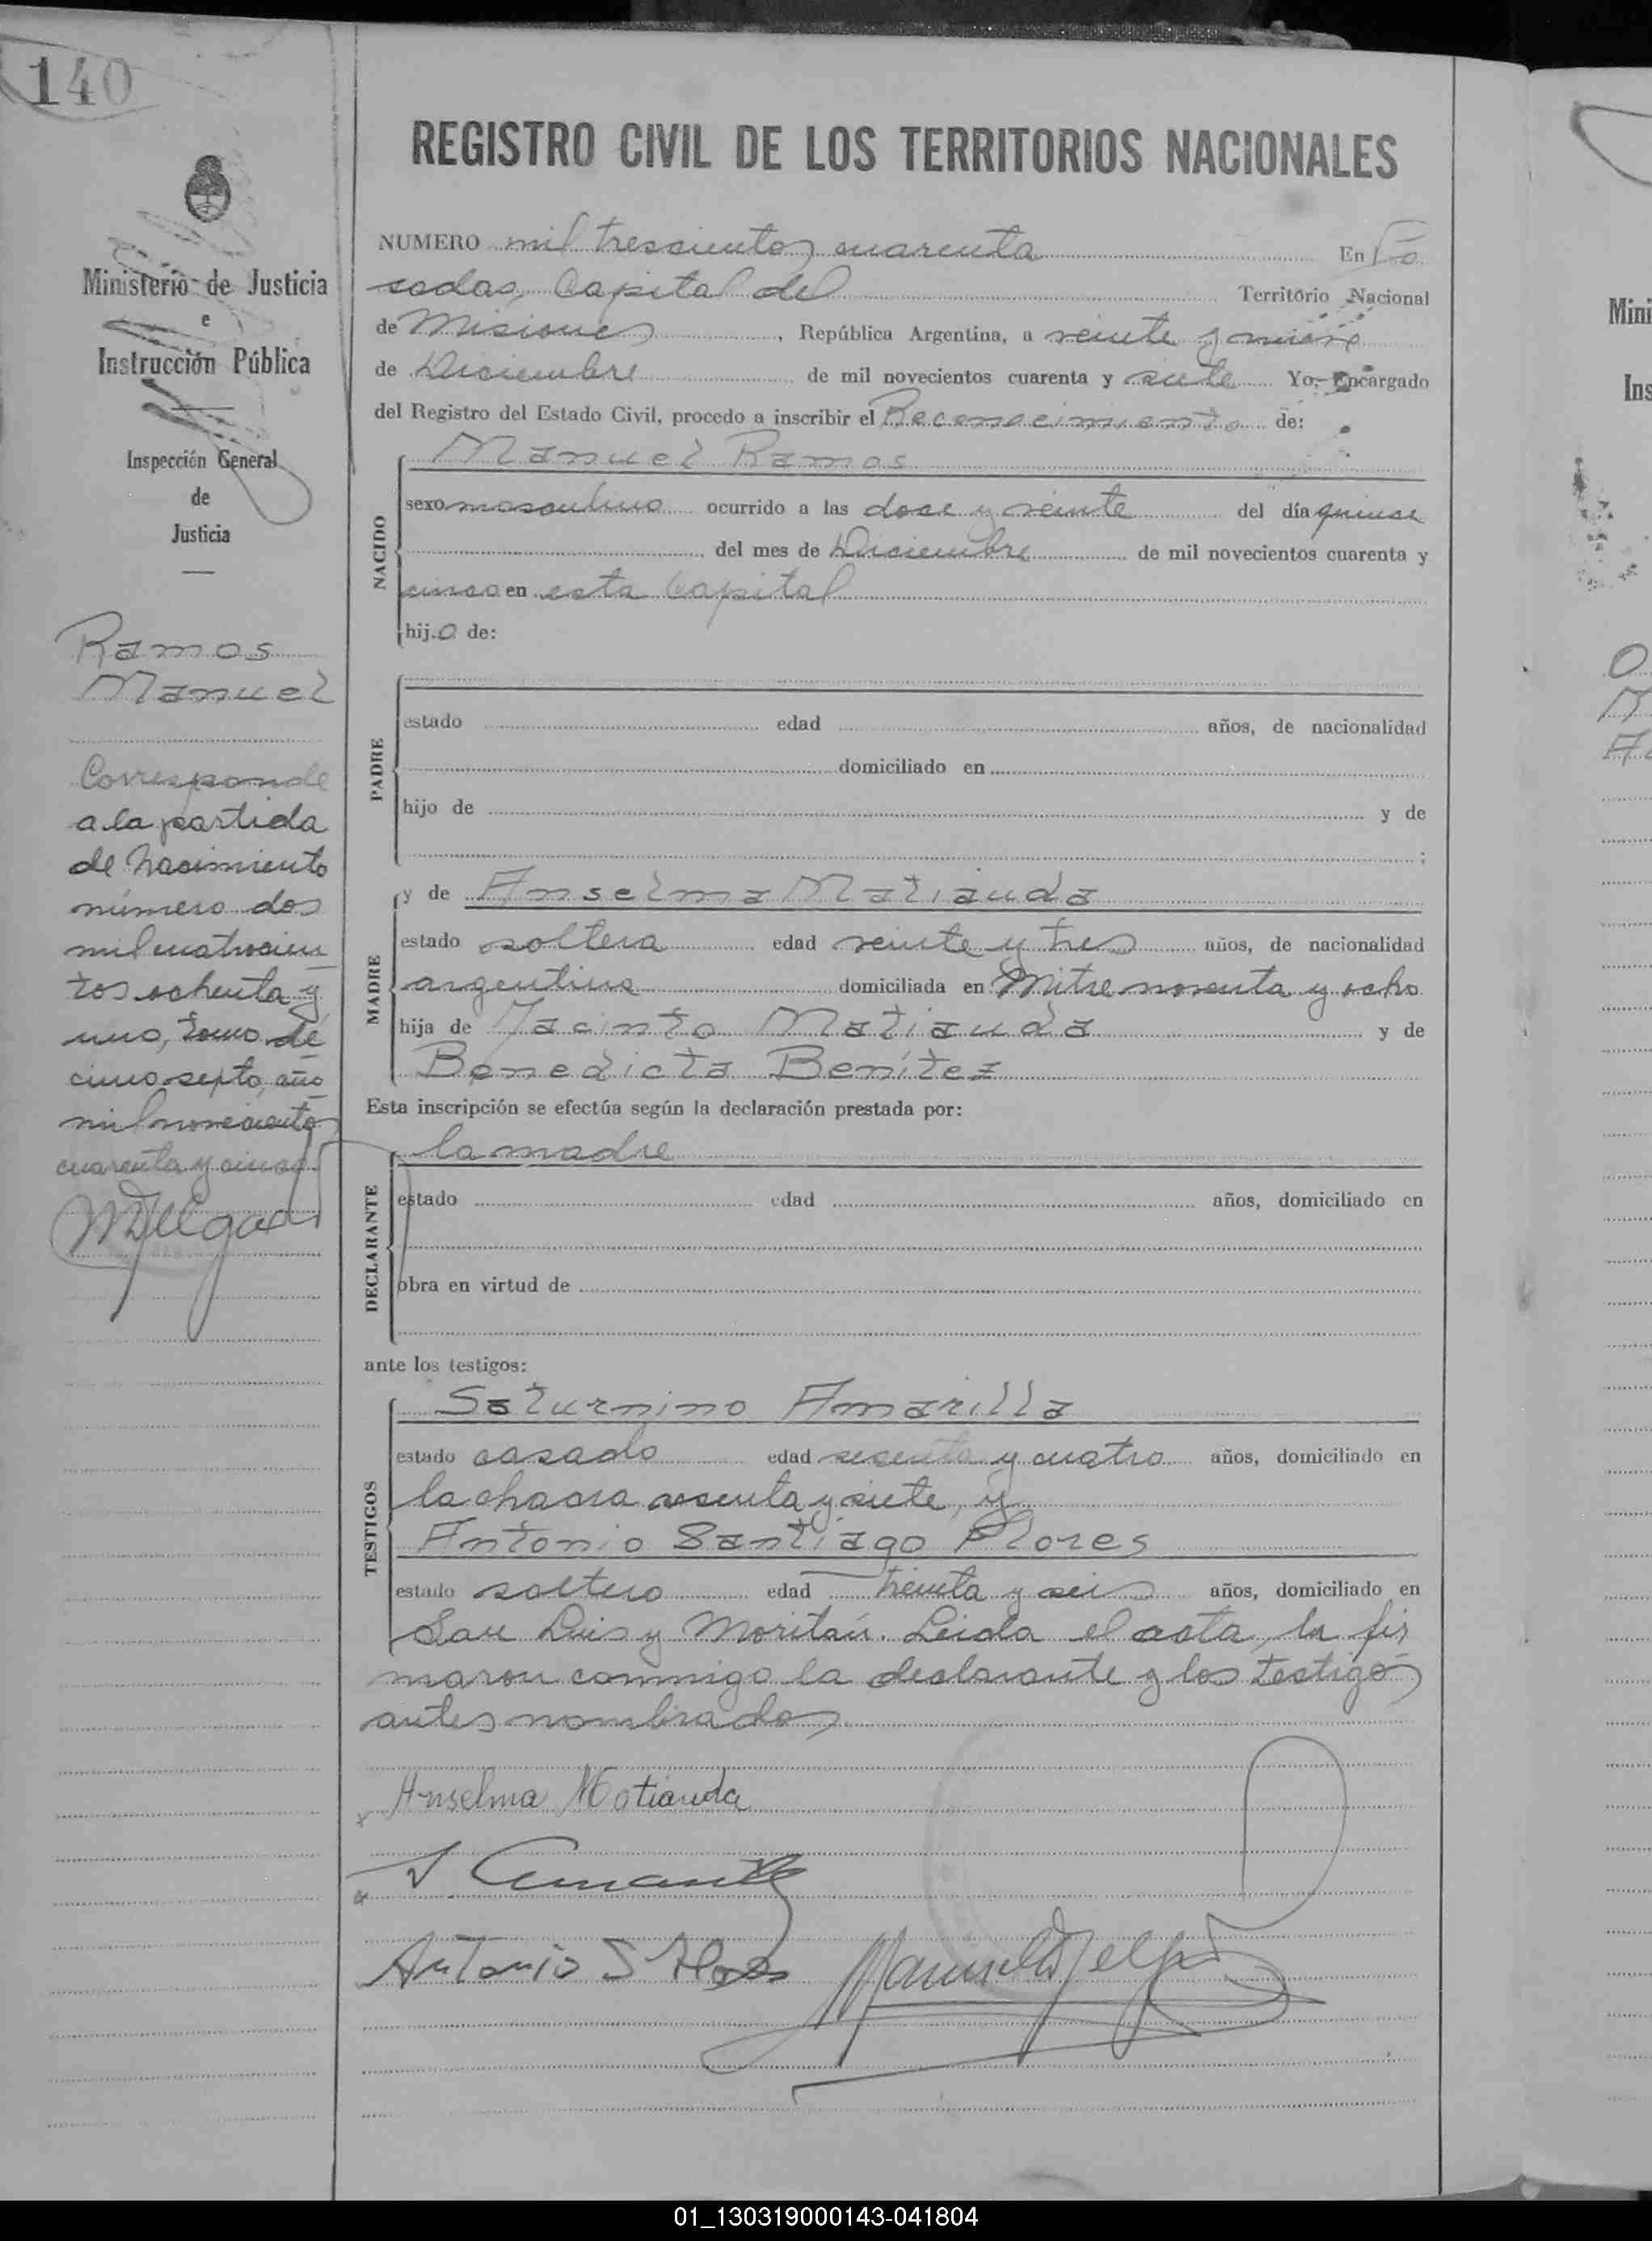 140
Ministerio de Justicia
e
Instrucción Pública
Inspección General
de
Justicia
Ramos
Manuel
Corresponde
a la partida
de Nacimiento
número dos
mil cuatrocien
tos ochenta y
uno, tomo dé
cimo septo, año
mil novecientos
cuarenta y cinco
REGISTRO CIVIL DE LOS TERRITORIOS NACIONALES
NUMERO mil trescientos cuarenta En Po
sadas, Capital del Territorio Nacional
de Misiones, República Argentina, a veinte y nueve
de Diciembre de mil novecientos cuarenta y siete Yo, Encargado
del Registro del Estado Civil, procedo a inscribir el Reconocimiento de:
NACIDO
Manuel Ramos
sexo masculino ocurrido a las doce y veinte del día quince
del mes de Diciembre de mil novecientos cuarenta y
cinco en esta Capital
hijo de:
PADRE
estado edad años, de nacionalidad
domiciliado en
hijo de y de
;
MADRE
y de Anselma Matiauda
estado soltera edad veinte y tres años, de nacionalidad
argentina domiciliada en Mitre noventa y ocho
hija de Jacinto Matiauda y de
Benedicta Benítez
Esta inscripción se efectúa según la declaración prestada por:
DECLARANTE
la madre
estado edad años, domiciliado en
obra en virtud de
ante los testigos:
TESTIGOS
Saturnino Amarilla
estado casado edad sesenta y cuatro años, domiciliado en
la chacra sesenta y siete, y
Antonio Santiago Flores
estado soltero edad treinta y seis años, domiciliado en
San Luis y Moritán. Leida el acta, la fir
maron conmigo la declarante y los testigos
antes nombrados
Anselma Matiauda
Antonio S Flores
Mini
Ins
01_130319000143-041804